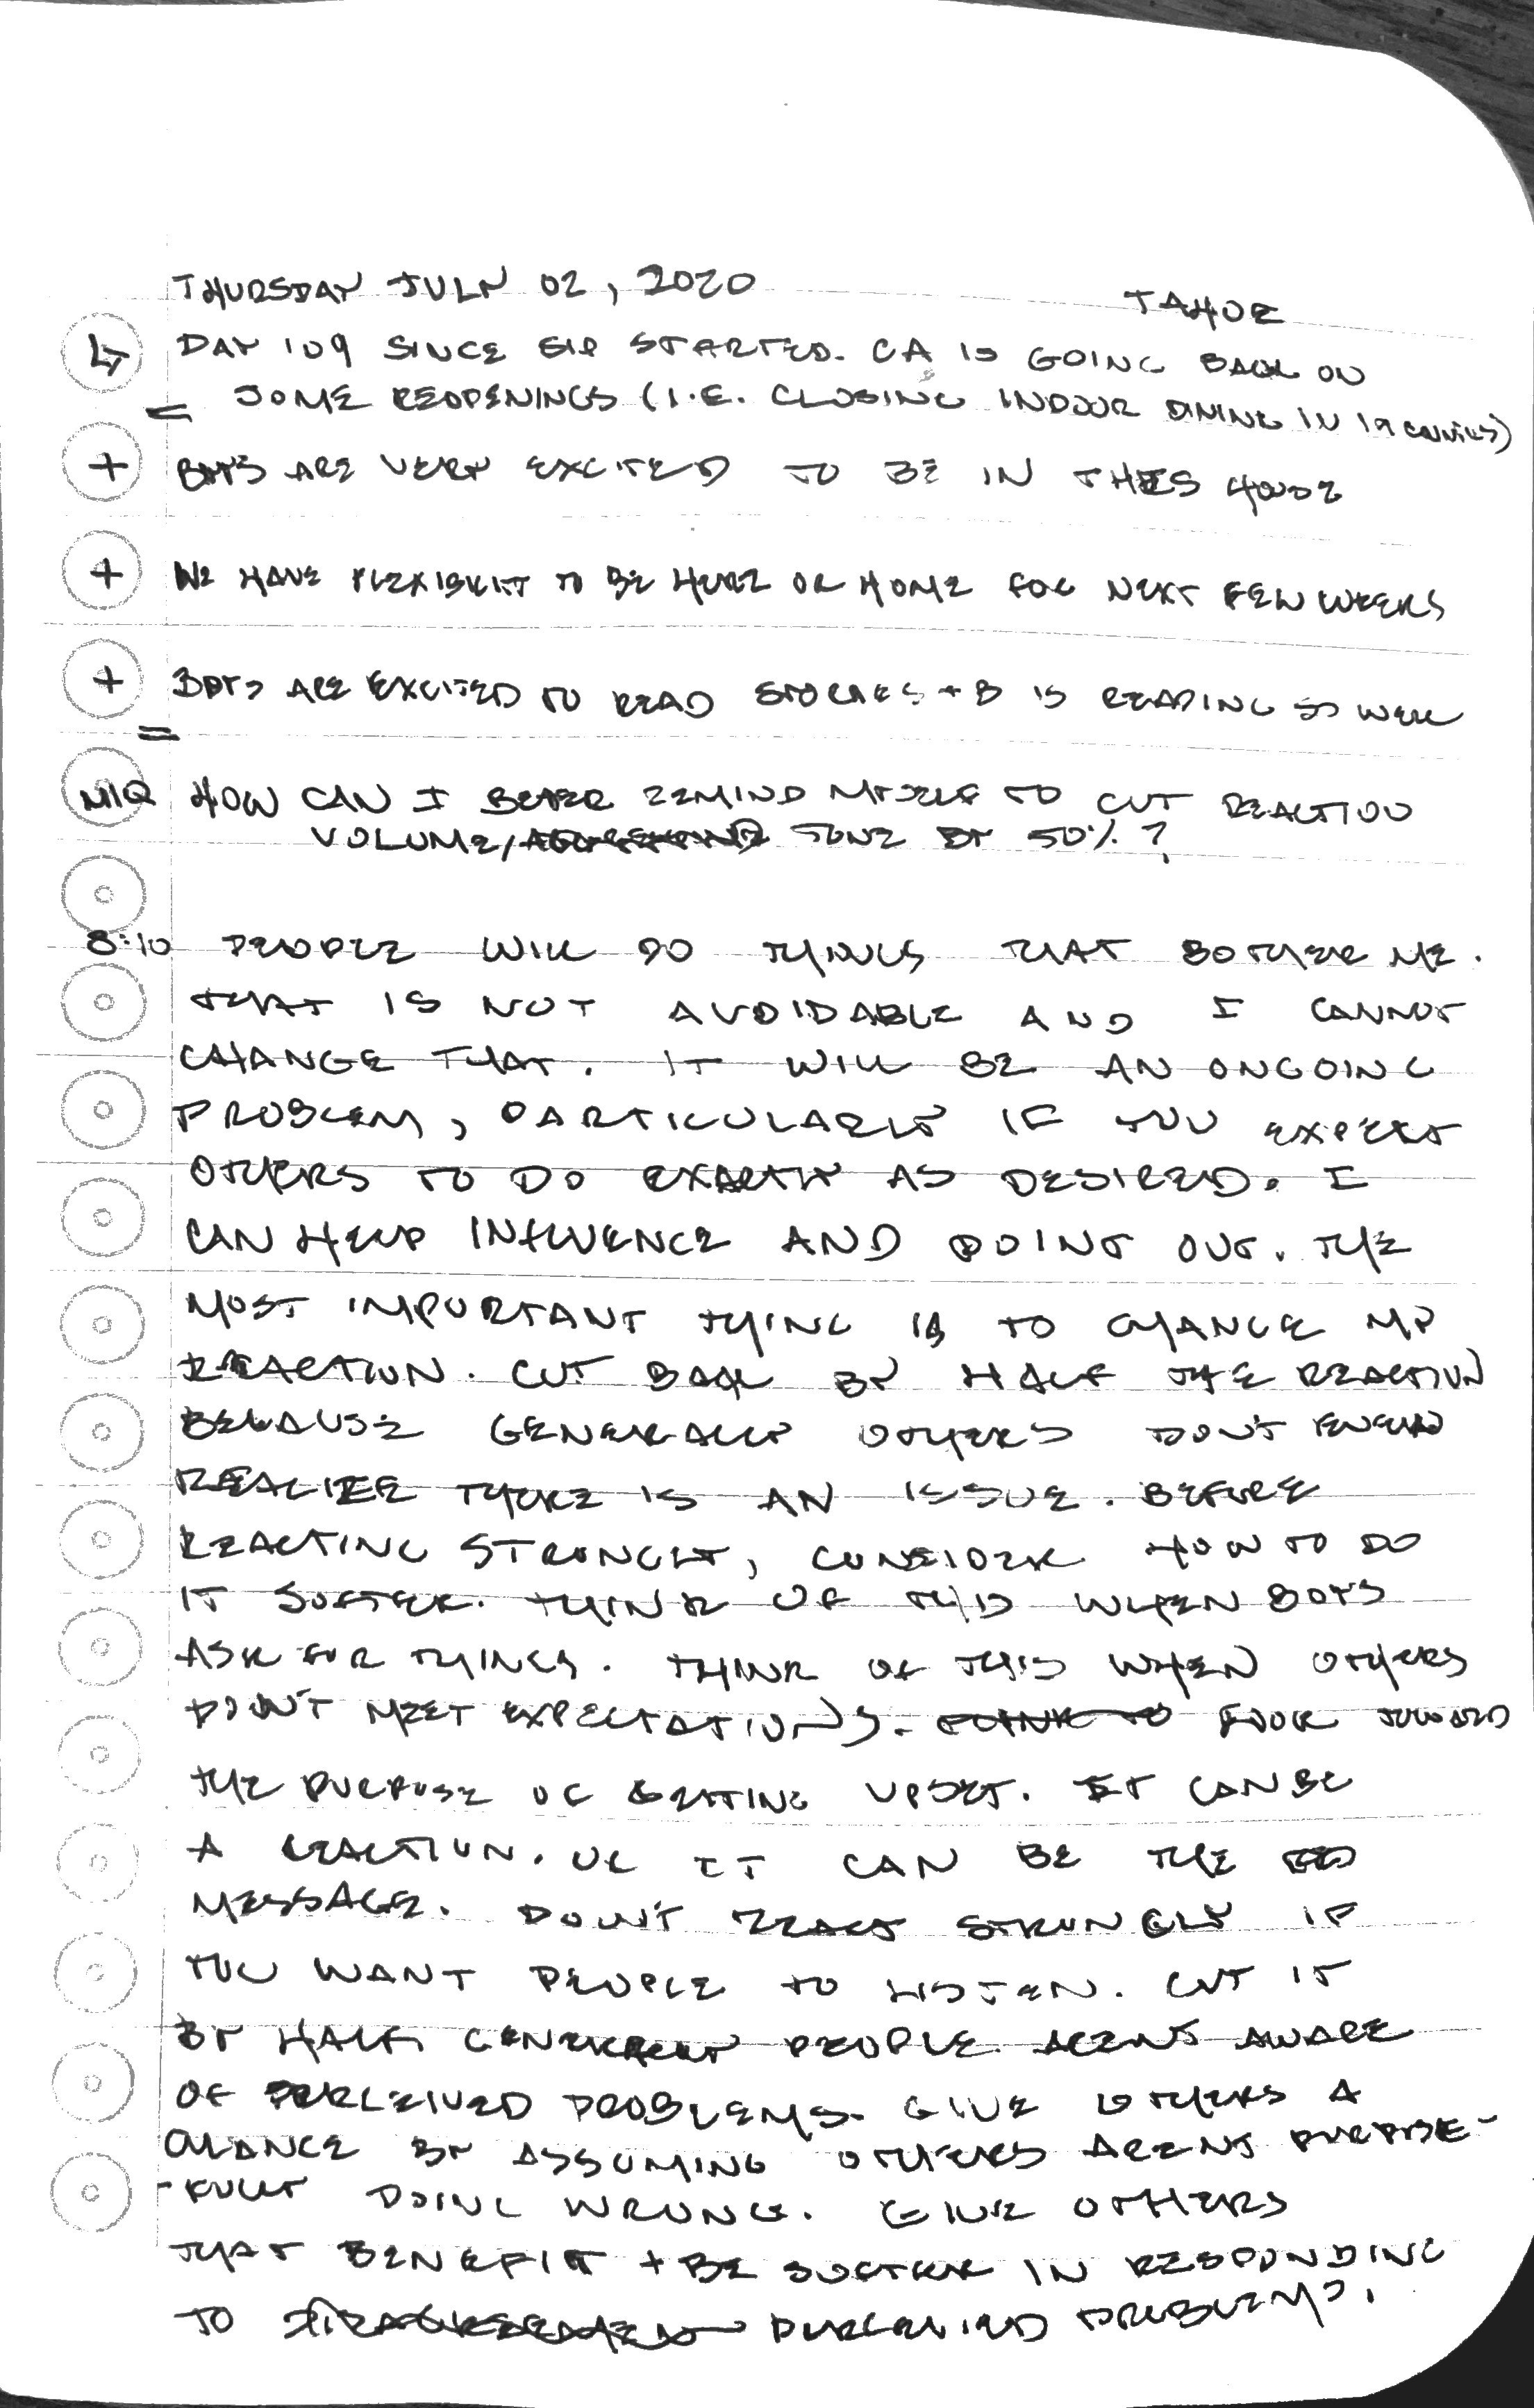 THURSDAY JULY 02, 2020
TAHOE
DAY 109 SINCE SIP STARTED. CA IS GOING BACK ON
= SOME REOPENINGS (I.E. CLOSING INDOOR DINING IN 19 COUNTIES)
+ BOYS ARE VERY EXCITED TO BE IN THIS HOUSE
+ WE HAVE FLEXIBILITY TO BE HERE OR HOME FOR NEXT FEW WEEKS
+ BOYS ARE EXCITED TO READ STORIES + B IS READING SO WELL
=
MIQ HOW CAN I BETTER REMIND MYSELF TO CUT REACTION
VOLUME/ TONE BY 50%?
8:10 PEOPLE WILL DO THINGS THAT BOTHER ME.
THAT IS NOT AVOIDABLE AND I CANNOT
CHANGE THAT. IT WILL BE AN ONGOING
PROBLEM, PARTICULARLY IF YOU EXPECT
OTHERS TO DO EXACTLY AS DESIRED. I
CAN HELP INFLUENCE AND POINT OUT. THE
MOST IMPORTANT THING IS TO CHANGE MY
REACTION. CUT BACK BY HALF THE REACTION
BECAUSE GENERALLY OTHERS DON'T EVEN
REALIZE THERE IS AN ISSUE. BEFORE
REACTING STRONGLY, CONSIDER HOW TO DO
IT SOFTER. THINK OF THIS WHEN BOYS
ASK FOR THINGS. THINK OF THIS WHEN OTHERS
DON'T MEET EXPECTATIONS. THINK TO LOOK TOWARD
THE PURPOSE OF GETTING UPSET. IT CAN BE
A REACTION. OR IT CAN BE THE
MESSAGE. DON'T REACT STRONGLY IF
YOU WANT PEOPLE TO LISTEN. CUT IT
BY HALF. GENERALLY PEOPLE ARENT AWARE
OF PERCEIVED PROBLEMS. GIVE OTHERS A
CHANCE BY ASSUMING OTHERS ARENT PURPOSE-
-FULLY DOING WRONG. GIVE OTHERS
THAT BENEFIT + BE SOFTER IN RESPONDING
TO PERCEIVED PROBLEMS.